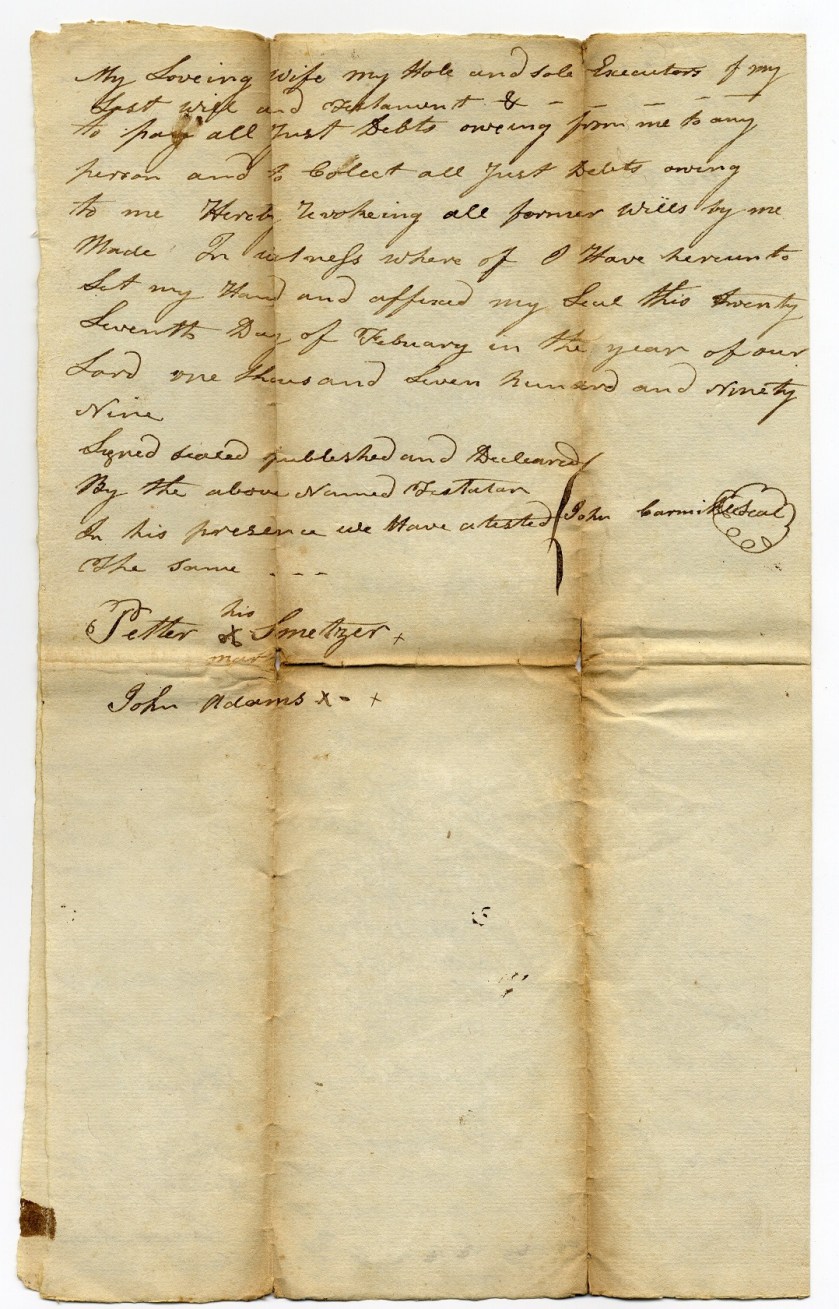 My Loveing Wife my Hole and sole Executors of my
Last will and Testament & - - - - -
to pay all Just Debts oweing from me to any
person and to Colect all Just Debts owing
to me Hereby Revokeing all former Wills by me
Made In witness where of I Have hereunto
Set my Hand and affixed my Seal this twenty
Seventh Day of Febuary in the year of our
Lord one thousand Seven hundred and Ninety
Nine
Signed sealed published and Decleared
By the above Named Testator
In his presence we Have atested John Carmikl Seal
The same - - -
his
Petter X Smetzer +
mark
John Adams x - +